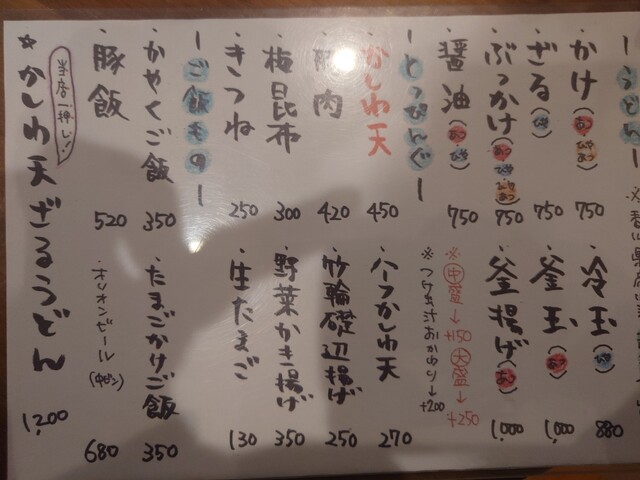 ーうどんー
・かけ(あつ ひやあつ) 750
・ざる(ひや) 750
・ぶっかけ(あつ ひや ひやあつ) 750
・醤油(あつ・ひや) 750
・冷玉(ひや) 880
・釜玉(あつ) 1,000
・釜揚げ(あつ) 1,000
※中盛→+150 大盛→+250
※つけ出汁おかわり→+200
ーとっぴんぐー
・かしわ天 450
・豚肉 420
・梅昆布 300
・きつね 250
・ハーフかしわ天 270
・竹輪磯辺揚げ 250
・野菜かき揚げ 350
・生たまご 130
ーご飯ものー
・かやくご飯 350
・豚飯 520
・たまごかけご飯 350
・オリオンビール(中ビン) 680
当店一押し!
*かしわ天ざるうどん 1,200